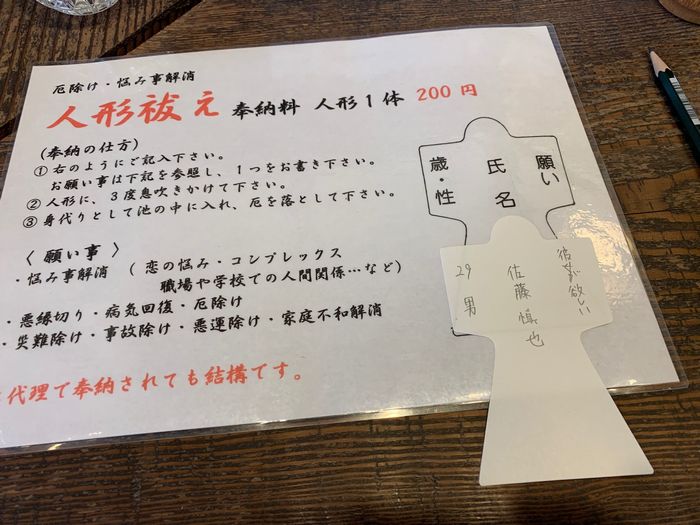 厄除け・悩み事解消
人形祓え 奉納料 人形1体 200円
(奉納の仕方)
①右のようにご記入下さい。
お願い事は下記を参照し、1つをお書き下さい。
②人形に、3度息吹きかけて下さい。
③身代りとして池の中に入れ、厄を落として下さい。
〈願い事〉
・悩み事解消(恋の悩み・コンプレックス
職場や学校での人間関係…など)
・悪縁切り・病気回復・厄除け
・災難除け・事故除け・悪運除け・家庭不和解消
代理で奉納されても結構です。
願い
氏名
歳・性
彼女が欲しい
佐藤慎也
29 男